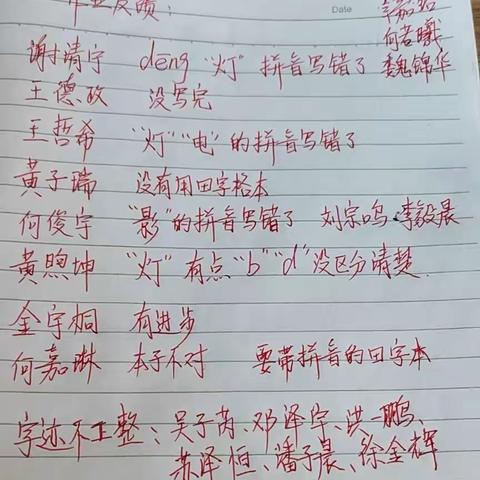 作业反馈:
Date
李嘉铭
何若曦
谢清宇 dēng "灯" 拼音写错了 魏锦华
王德政 没写完
王哲希 "灯" "电" 的拼音写错了
黄子瑞 没有用田字格本
何俊宇 "影" 的拼音写错了 刘宗鸣、李毅晨
黄煦坤 "灯" 有点 "b" "d" 没区分清楚.
金宇桐 有进步
何嘉琳 本子不对 要带拼音的田字本
字迹不工整:吴子芮、邓泽宇、洪一鹏、
苏泽恒、潘子晨、徐金辉